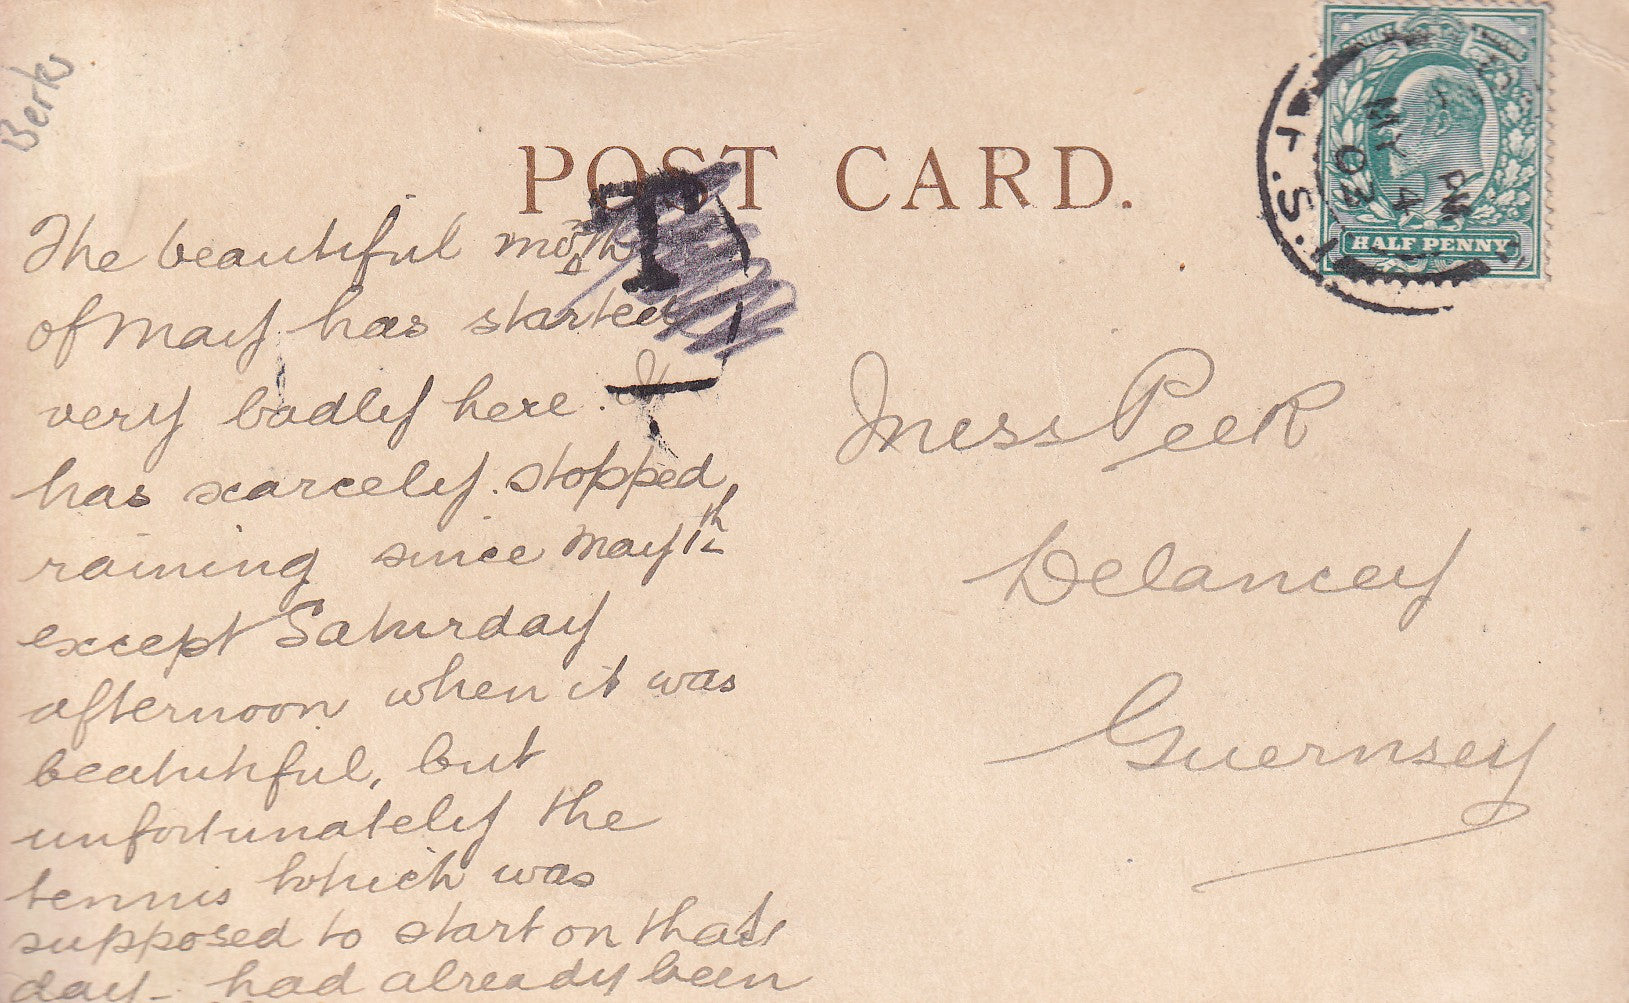 Berks
POST CARD.
T
MY 4
02
PM
T.S.
HALF PENNY
The beautiful moth
n
of May has started
very badly here. It
has scarcely stopped
raining since May 1th
except Saturday
afternoon when it was
beatutiful, but
unfortunately the
tennis which was
supposed to start on that
day - had already been
Miss Peek
Delancey
Guernsey